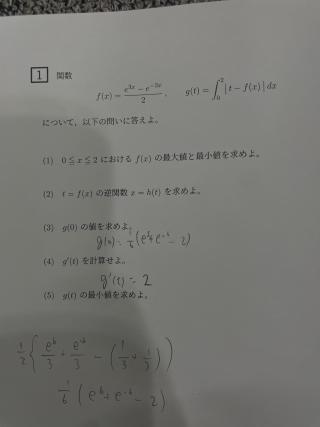 1 関数
f(x) = (e^{3x} − e^{−3x})/2 , g(t) = ∫_0^2 | t − f(x) | dx
について，以下の問いに答えよ。
(1) 0 ≦ x ≦ 2 における f(x) の最大値と最小値を求めよ。
(2) t = f(x) の逆関数 x = h(t) を求めよ。
(3) g(0) の値を求めよ。
g(0) = 1/6 (e^6 + e^{-6} − 2)
(4) g′(t) を計算せよ。
g′(t) = 2
(5) g(t) の最小値を求めよ。
1/2 { e^6/3 + e^{-6}/3 − (1/3 + 1/3) }
1/6 (e^6 + e^{-6} − 2)